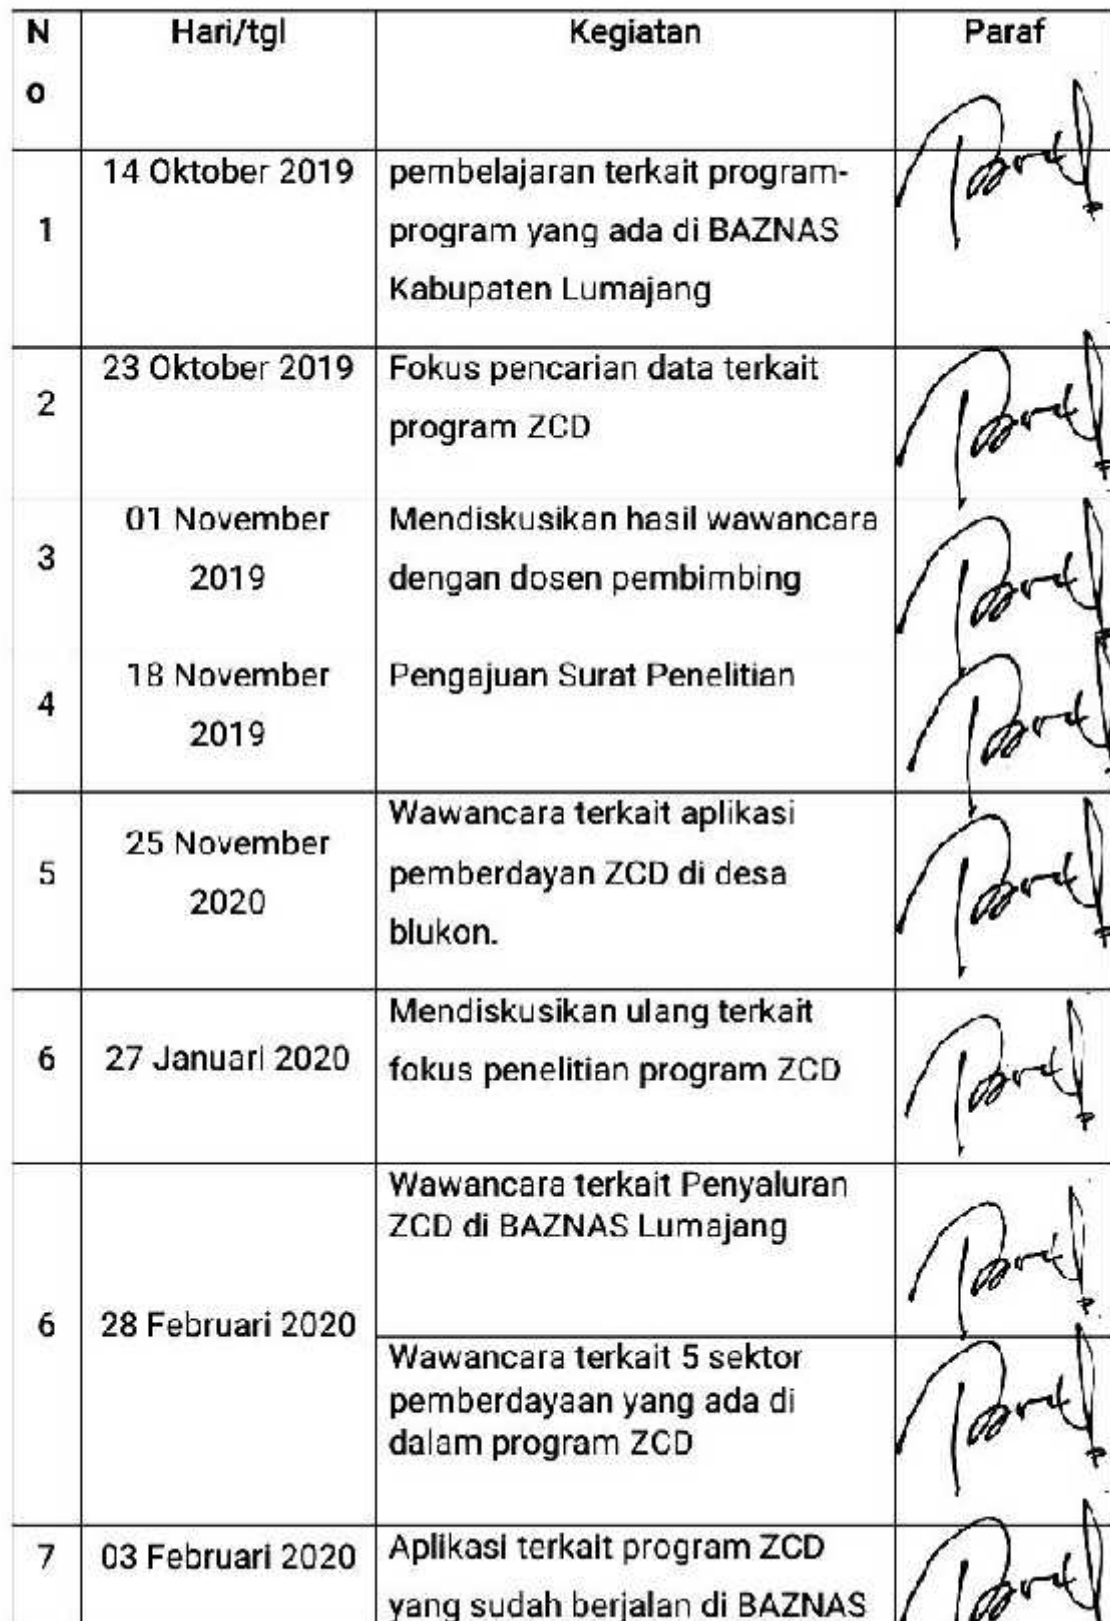 N
o
Hari/tgl
Kegiatan
Paraf
1
14 Oktober 2019
pembelajaran terkait program-
program yang ada di BAZNAS
Kabupaten Lumajang
2
23 Oktober 2019
Fokus pencarian data terkait
program ZCD
3
01 November
2019
Mendiskusikan hasil wawancara
dengan dosen pembimbing
4
18 November
2019
Pengajuan Surat Penelitian
5
25 November
2020
Wawancara terkait aplikasi
pemberdayan ZCD di desa
blukon.
6
27 Januari 2020
Mendiskusikan ulang terkait
fokus penelitian program ZCD
6
28 Februari 2020
Wawancara terkait Penyaluran
ZCD di BAZNAS Lumajang
Wawancara terkait 5 sektor
pemberdayaan yang ada di
dalam program ZCD
7
03 Februari 2020
Aplikasi terkait program ZCD
yang sudah berjalan di BAZNAS